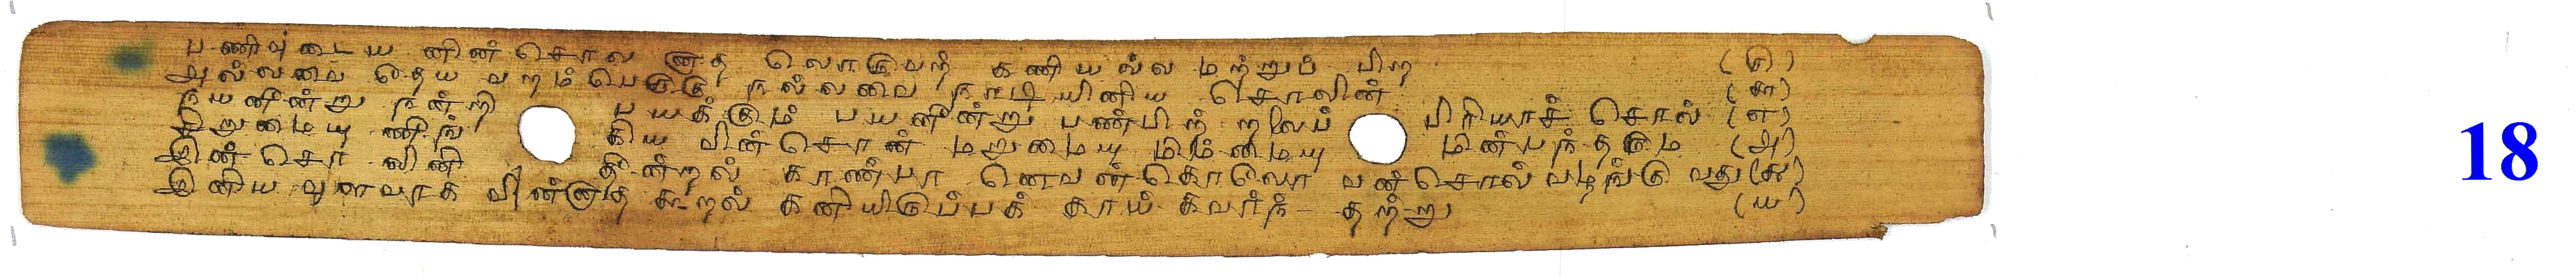 பணிவுடைய னின்சொல னாத லொருவற் கணியல்ல மற்றுப் பிற (௫)
அல்லவை தேய வறம்பெருகு நல்லவை நாடி யினிய சொலின் (௬)
நயனின்று நன்றி பயக்கும் பயனின்று பண்பிற் றலைப் பிரியாச் சொல் (௭)
சிறுமையு ணீங்கிய வின்சொன் மறுமையு மிம்மையு மின்பந்தரும் (௮)
இன்சொ லினிதீன்றல் காண்பா னெவன்கொலோ வன்சொல் வழங்கு வது (௯)
இனிய வுளவாக வின்னாத கூறல் கனியிருப்பக் காய் கவர்ந் தற்று (௰)
18